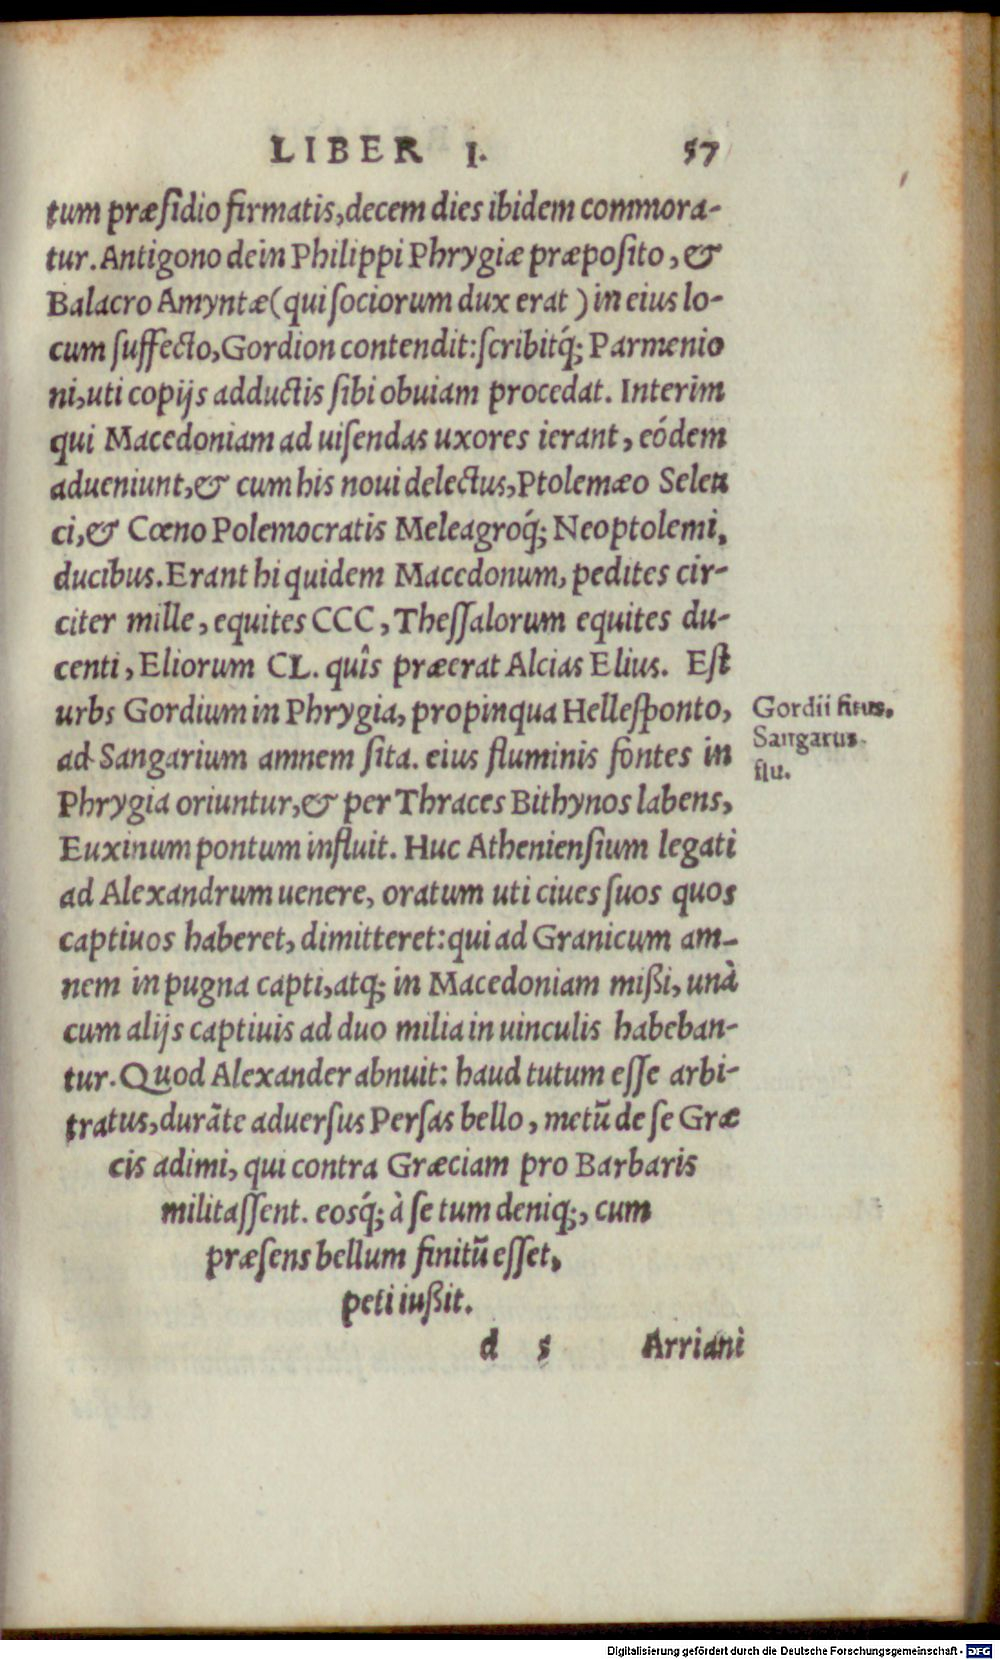 LIBER I. 57
tum præſidio firmatis, decem dies ibidem commora-
tur. Antigono dein Philippi Phrygiæ præpoſito, &
Balacro Amyntæ (qui ſociorum dux erat) in eius lo-
cum ſuffecto, Gordion contendit: ſcribitq́; Parmenio
ni, uti copijs adductis ſibi obuiam procedat. Interim
qui Macedoniam ad uiſendas uxores ierant, eódem
adueniunt, & cum his noui delectus, Ptolemæo Seleu
ci, & Cœno Polemocratis Meleagroq́; Neoptolemi,
ducibus. Erant hi quidem Macedonum, pedites cir-
citer mille, equites CCC, Theſſalorum equites du-
centi, Eliorum CL. quîs præerat Alcias Elius. Eſt
urbs Gordium in Phrygia, propinqua Helleſponto,
Gordii ſitus.
ad Sangarium amnem ſita. eius fluminis fontes in
Sangarus
flu.
Phrygia oriuntur, & per Thraces Bithynos labens,
Euxinum pontum influit. Huc Athenienſium legati
ad Alexandrum uenere, oratum uti ciues ſuos quos
captiuos haberet, dimitteret: qui ad Granicum am-
nem in pugna capti, atq; in Macedoniam mißi, unà
cum alijs captiuis ad duo milia in uinculis habeban-
tur. Quod Alexander abnuit: haud tutum eſſe arbi-
tratus, durāte aduerſus Perſas bello, metū de ſe Græ
cis adimi, qui contra Græciam pro Barbaris
militaſſent. eosq́; à ſe tum deniq;, cum
præſens bellum finitū eſſet,
peti iußit.
d 5 Arriani
Digitalisierung gefördert durch die Deutsche Forschungsgemeinschaft - DFG